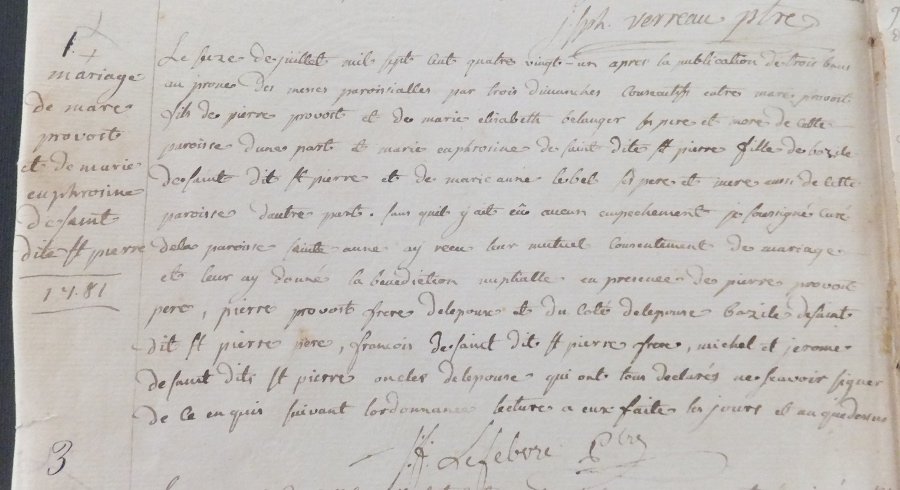 jsph. verreau ptre
1
mariage
de marc
provost
et de marie
euphrosine
desaint
dite st pierre
1781
Le seize de juillet mil sept cent quatre vingt-un apres la publication de trois bans
au prone des messes paroissialles par trois dimanches consecutifs entre marc provost
fils de pierre provost et de marie elisabeth belanger ses pere et mere de cette
paroisse dune part et marie euphrosine de saint dite st pierre fille de bazile
desaint dit st pierre et de marie anne lebel ses pere et mere aussi de cette
paroisse dautre part. sans quil y ait eû aucun empechement je soussigné curé
dela paroisse sainte anne ay recu leur mutuel consentement de mariage
et leur ay donné la bénédiction nuptialle en presence de pierre provost
pere, pierre provost frere delepoux et du coté delepouse bazile desaint
dit st pierre pere, francois desaint dit st pierre frere, michel et jerome
desaint dits st pierre oncles delepouse qui ont tous declarés ne scavoir signer
de ce enquis suivant lordonnance lecture a eux faite les jours et an que dessus
Lefebvre Ptre
3